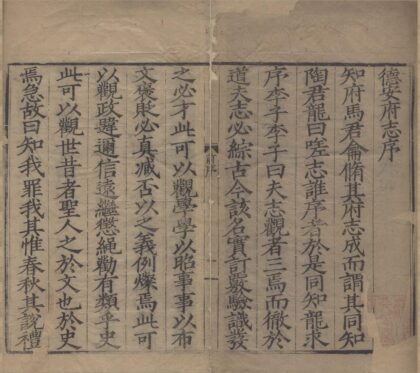 德安府志序
知府馬君侖脩其府志成而謂其同知
陶君龍曰嗟志誰序者於是同知龍求
序李子李子曰夫志觀者三焉而徹於
道夫志必綜古今該名實訂數驗識發
之必才此可以觀學學以昭事事以布
文褒貶必真臧否以之義例燦焉此可
以觀政遡邇信遠繼懲繩勸有類乎史
此可以觀世昔者聖人之於文也於史
焉急故曰知我罪我其惟春秋其說禮